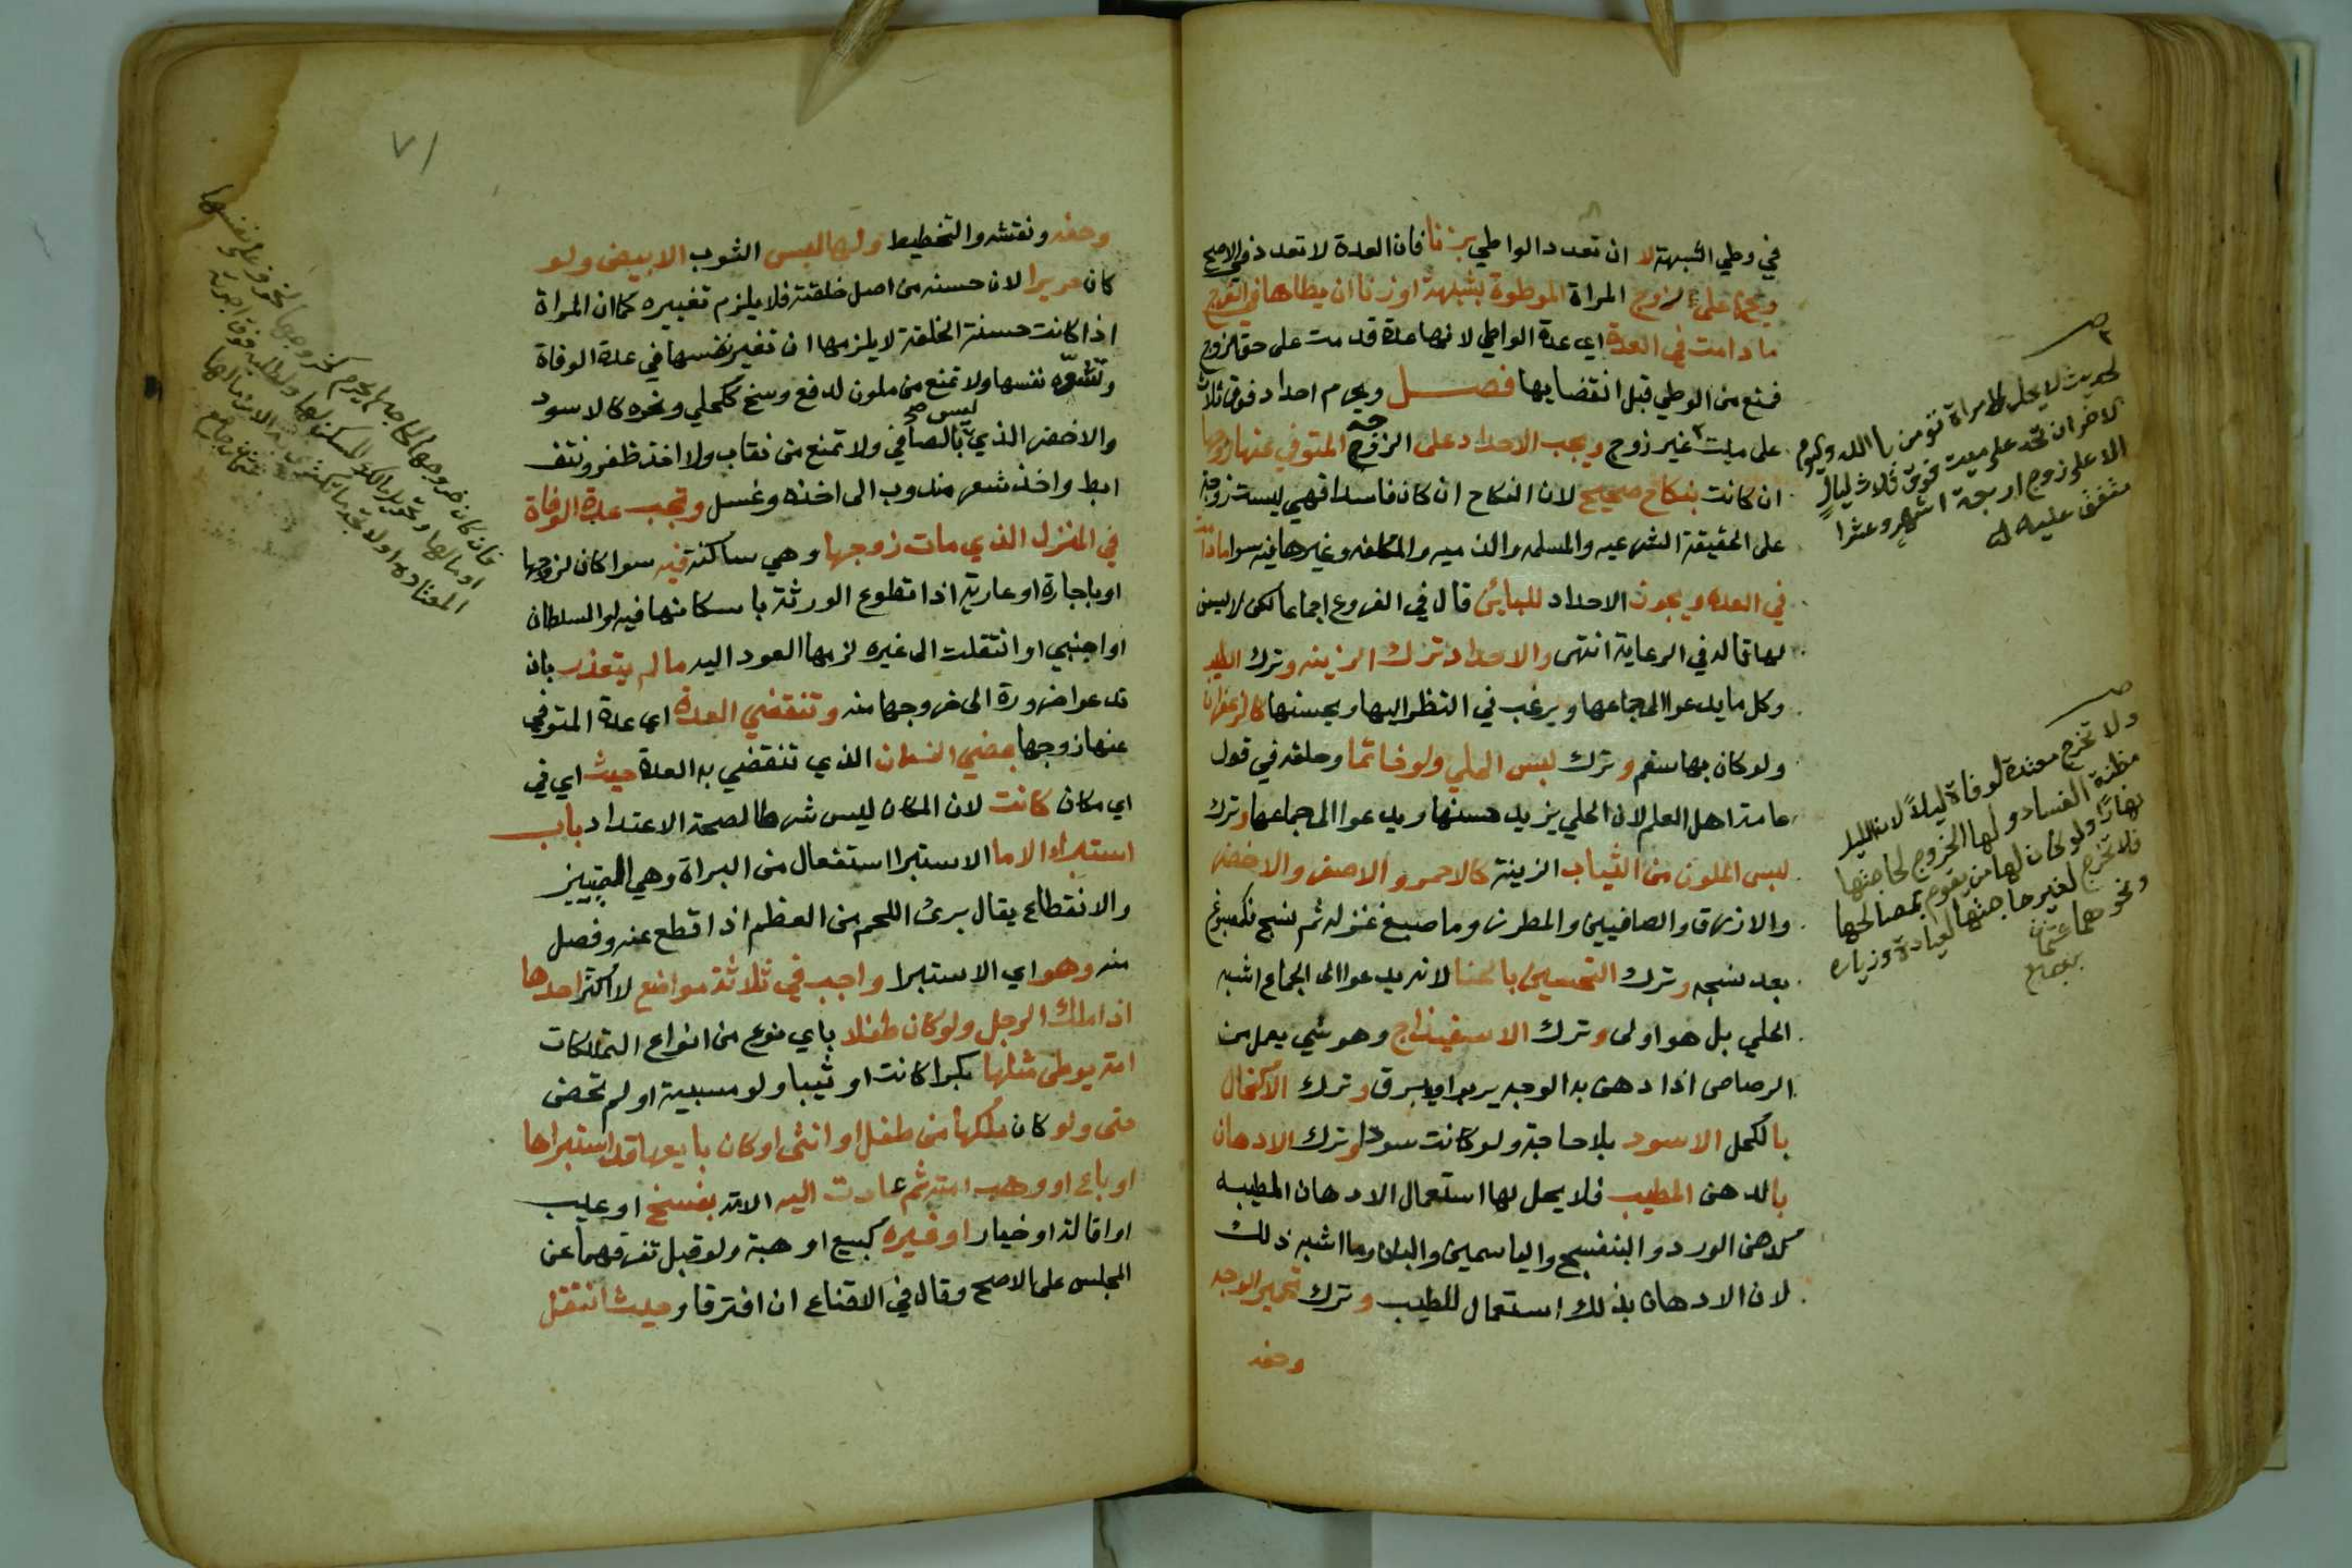 في وطي الشبهة لا ان تعدد الواطي بزنا فان العدة لا تعدد في الاصح
ويحرم على الزوج المراة الموطوة بشبهة او زنا ان يطاها في الفرج
ما دامت في العدة اي عدة الواطي لانها عدة قدمت على حق الزوج
فمنع من الوطي قبل انقضايها فصل ويحرم احداد فوق ثلاث
على ميت غير زوج ويجب الاحداد على الزوجة المتوفي عنها زوجها
ان كانت بنكاح صحيح لان النكاح ان كان فاسدا فهي ليست زوجة
على الحقيقة الشرعيه والمسلمه والذميه والمكلفه وغيرها فيه سوا مادامت
في العده ويجوز الاحداد للباين قال في الفروع اجماعا لكن لا يسن
لها قاله في الرعاية انتهى والاحداد ترك الزينه وترك الطيب
وكل ما يدعوا الى جماعها ويرغب في النظر اليها ويحسنها كالزعفران
ولو كان بها سقم وترك لبس الحلي ولو خاتما وحلقه في قول
عامة اهل العلم لان الحلي يزيد حسنها ويدعوا الى جماعها وترك
لبس الملون من الثياب الزينة كالاحمر والاصفر والاخضر
والازرق الصافيين والمطرز وما صبغ غزله ثم نسج كمصبوغ
بعد نسجه وترك التحسين بالحنا لانه يدعوا الى الجماع اشبه
الحلي بل هو اولى وترك الاسفيذاج وهو شي يعمل من
الرصاص اذا دهن به الوجه يربو ويبرق وترك الاكتحال
بالكحل الاسود بلا حاجة ولو كانت سودا وترك الادهان
بالدهن المطيب فلا يحل لها استعمال الادهان المطيبه
كدهن الورد والبنفسج والياسمين والبان وما اشبه ذلك
لان الادهان بذلك استعمال للطيب وترك تحمير الوجه
وحفه
صـ
لحديث لا يحل لامراة تؤمن بالله واليوم
الاخر ان تحد على ميت فوق ثلاث ليالٍ
الا على زوج اربعة اشهر وعشرا
متفق عليه
صـ
ولا تخرج معتدة لوفاة ليلاً لان الليل
مظنة الفساد ولها الخروج لحاجتها
نهارًا ولو كان لها من يقوم بمصالحها
فلا تخرج لغير حاجتها لعيادة وزيارة
ونحوهما عثمان
٧١
وحفه ونقشه والتخطيط ولها لبس الثوب الابيض ولو
كان حريرا لان حسنه من اصل خلقته فلا يلزم تغييره كما ان المراة
اذا كانت حسنة الخلقة لا يلزمها ان تغير نفسها في عدة الوفاة
وتشوه نفسها ولا تمنع من ملون لدفع وسخ ككحلي ونحوه كالاسود
والاخضر الذي ليس صح بالصافي ولا تمنع من نقاب ولا اخذ ظفر ونتف
ابط واخذ شعر مندوب الى اخذه وغسل وتجب عدة الوفاة
في المنزل الذي مات زوجها وهي ساكنة فيه سوا كان لزوجها
او باجارة او عارية اذا تطوع الورثة باسكانها فيه او السلطان
او اجنبي او انتقلت الى غيره لزمها العود اليه مالم يتعذر بان
تدعوا ضرورة الى خروجها منه وتنقضي العدة اي عدة المتوفى
عنها زوجها بمضي الزمان الذي تنقضي به العدة حيث اي في
اي مكان كانت لان المكان ليس شرطا لصحة الاعتداد باب
استبراء الاما الاستبرا استفعال من البراة وهي التمييز
والانقطاع يقال برئ اللحم من العظم اذا قطع عنه وفصل
منه وهو اي الاستبرا واجب في ثلاثة مواضع لا اكثر احدها
اذا ملك الرجل ولو كان طفلا باي نوع من انواع التملكات
امة يوطى مثلها بكرا كانت او ثيبا ولو مسبية او لم تحض
حتى ولو كان ملكها من طفل او انثى او كان بايعها قد استبراها
او باع او وهب امته ثم عادت اليه الامة بفسخ او عيب
او اقالة او خيار او غيره كبيع او هبة ولو قبل تفرقهما عن
المجلس على الاصح وقال في الاقناع ان افترقا وحيث انتقل
فان كان خروجها لحاجة